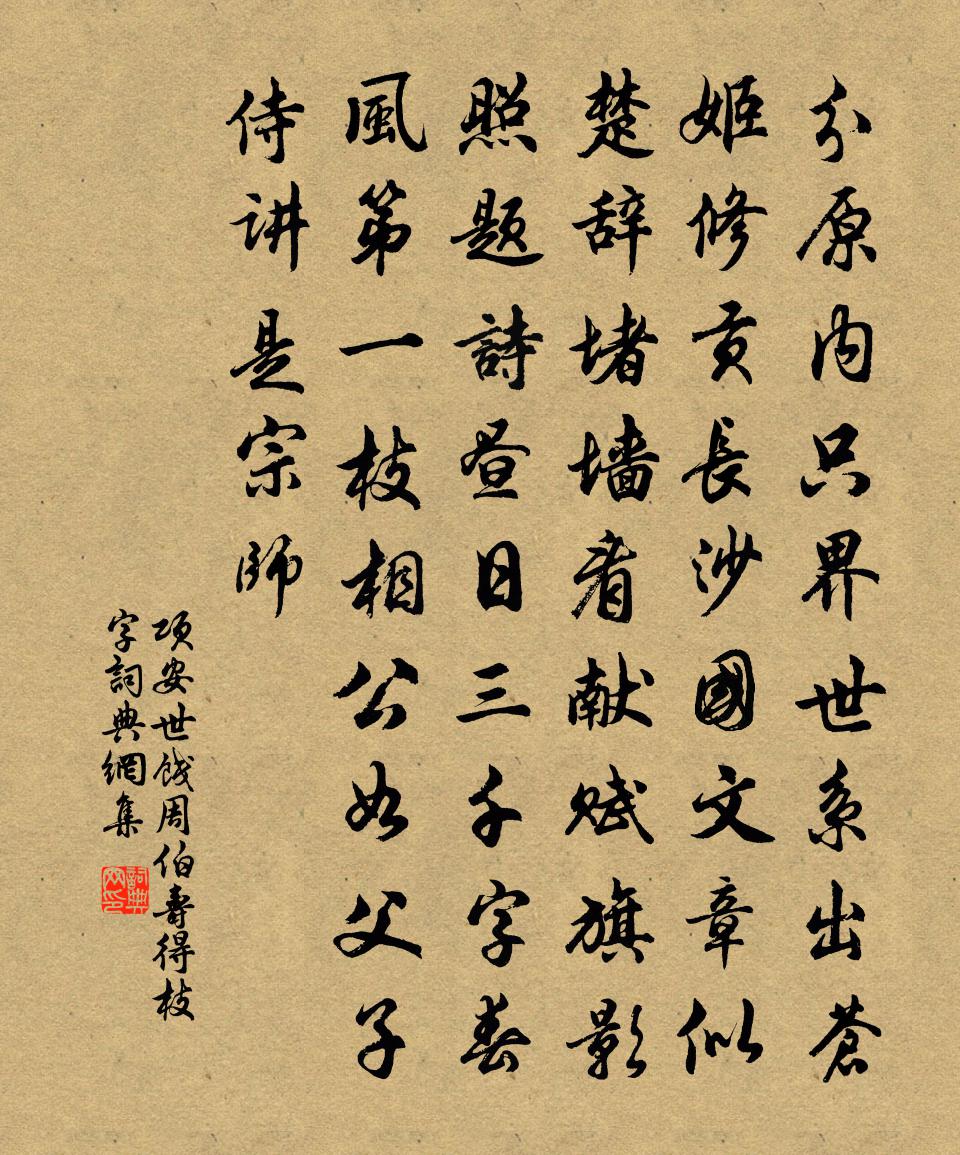 分原内只界世系出苍
姬修贡長沙國文章似
楚辞堵墙看献赋旗影
照题詩昼日三千字春
風第一枝相公如父子
侍讲是宗師
项安世饯周伯壽得枝
字詞典網集
詞典網印